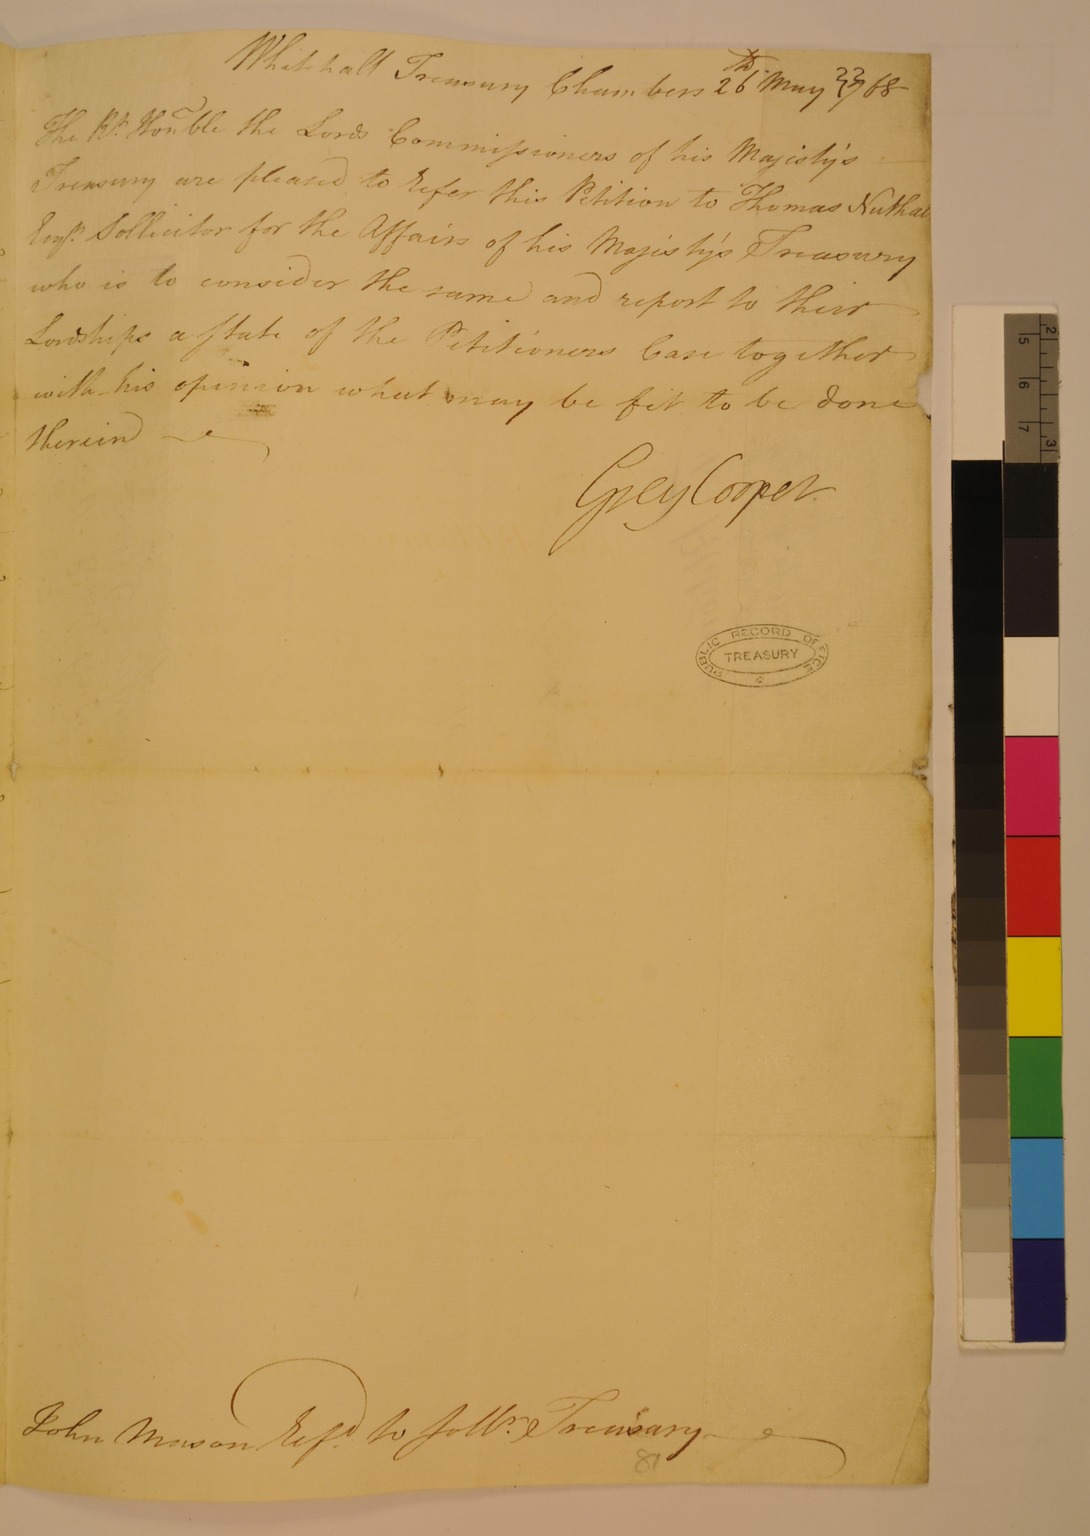 Whitehall Treasury Chambers 26th May 1768
33
The Rt. Honble the Lords Commissioners of his Majesty's
Treasury are pleased to Refer this Petition to Thomas Nuthal
Esqr. Sollicitor for the Affairs of his Majesty's Treasury
who is to consider the same and report to their
Lordships a state of the Petitioners Case together
with his opinion what may be fit to be done
therein
Grey Cooper.
PUBLIC RECORD OFFICE
TREASURY
John Mason Refd. to Sollr. Treasury
81
2
5
6
7
3